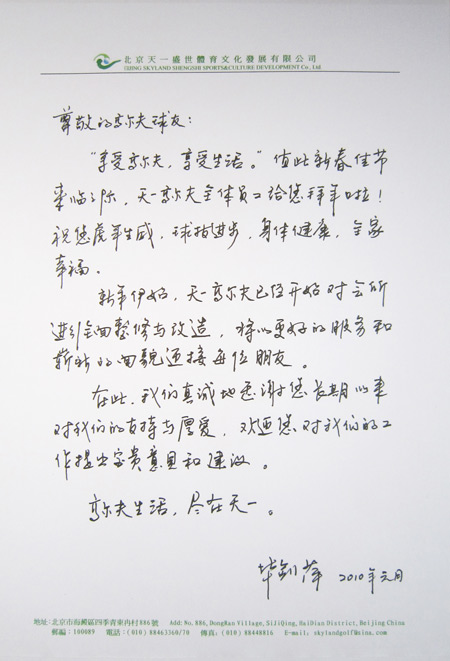 北京天一盛世體育文化發展有限公司
BEIJING SKYLAND SHENGSHI SPORTS&CULTURE DEVELOPMENT Co., Ltd
尊敬的高尔夫球友：
“享受高尔夫，享受生活。”值此新春佳节
来临之际，天一高尔夫全体员工给您拜年啦！
祝您虎年生威，球技进步，身体健康，全家
幸福。
新年伊始，天一高尔夫已经开始对会所
进行全面整修与改造，将以更好的服务和
崭新的面貌迎接每位朋友。
在此，我们真诚地感谢您长期以来
对我们的支持与厚爱，欢迎您对我们的工
作提出宝贵意见和建议。
高尔夫生活，尽在天一。
毕剑萍 2010年元月
地址:北京市海澱區四季青東冉村886號 Add: No.886, DongRan Village, SiJiQing, HaiDian District, Beijing China
郵編：100089 電話：(010) 88463360/70 傳真：(010) 88448816 E-mail: skylandgolf@sina.com